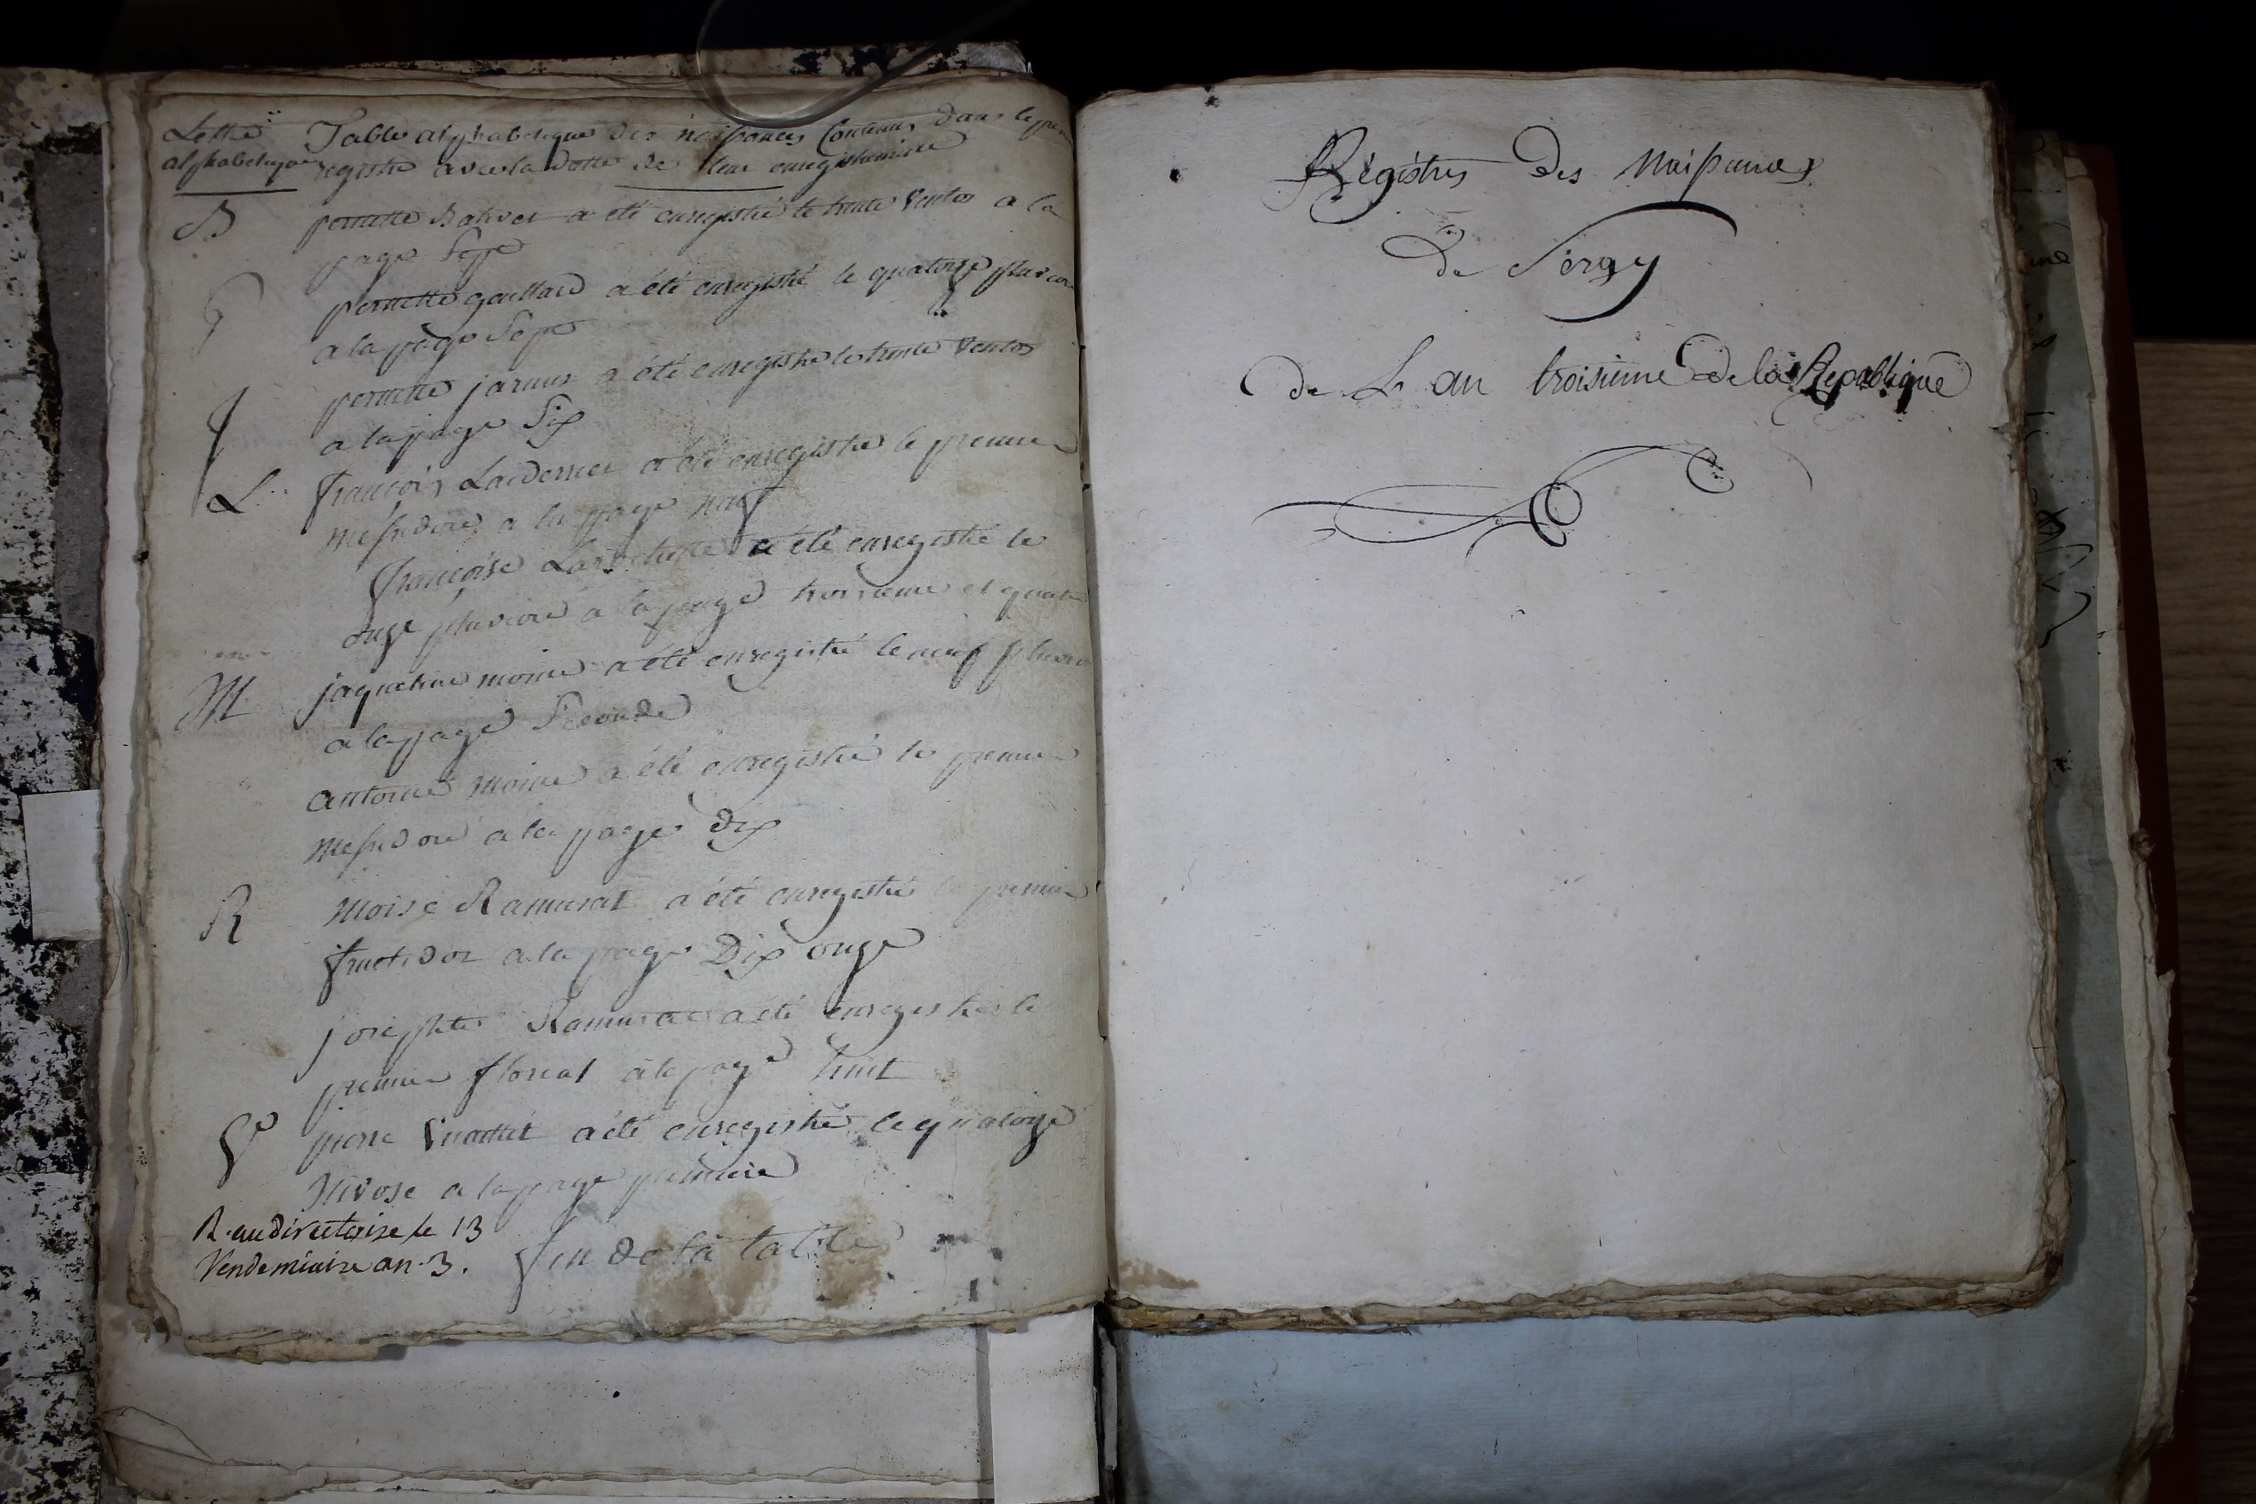 Lettre alphabetique
Table alphabetique des naissances Contenus dans le
registre avec la datte de leur enregistrement
B pernette a été enregistré le trente Ventos a la
page Sept
G pernette gaillard a été enregistré le quatorze
a la page Sept
J pernette a été enregistré le trente Ventos
a la page Six
L françois a été enregistré le premier
Messidore a la page neuf
françoise a été enregistré le
onze pluviore a la page troisieme et quatre
M jaqueline moine a été enregistré le neuf
a la page Seconde
antoine moine a été enregistré le premier
Messidore a la page dix
R Moise Ramusat a été enregistré le premier
fructidor a la page Dix onze
josephte a été enregistré le
premier floreal a la page huit
V pierre Vuattet a été enregistré le quatorze
Nivose a la page premiere
R. au directoire le 13
Vendemiaire an 3.
fin de la table
Régistres des Naissances
de Sergy
de L an troisieme de la Republique